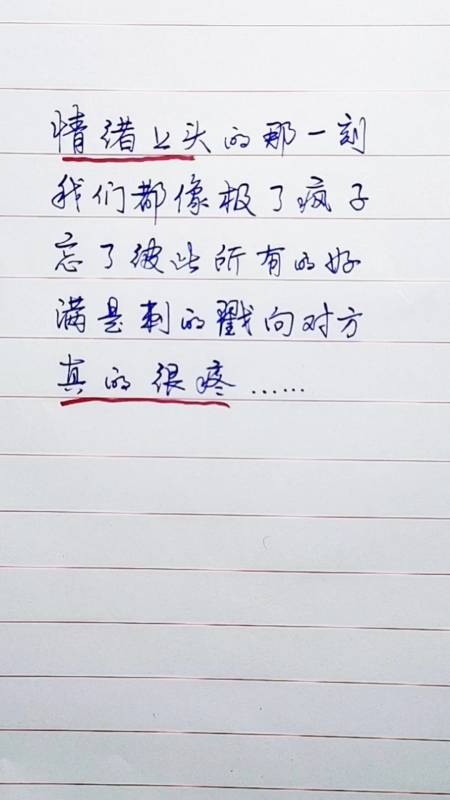 情绪上头的那一刻
我们都像极了疯子
忘了彼此所有的好
满是刺的戳向对方
真的很疼……